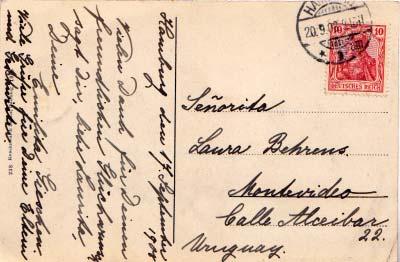 Hamburg den 17 September
1908
Vielen Dank für Deinen
freundlichen Glückwunsch
sagt Dir, liebe
Deine
Viele Grüße für Deine Eltern
und
HA
20.9.08
10 10
DEUTSCHES REICH
Señorita
Laura Behrens.
Montevideo
Calle Alceibar
22.
Uruguay.